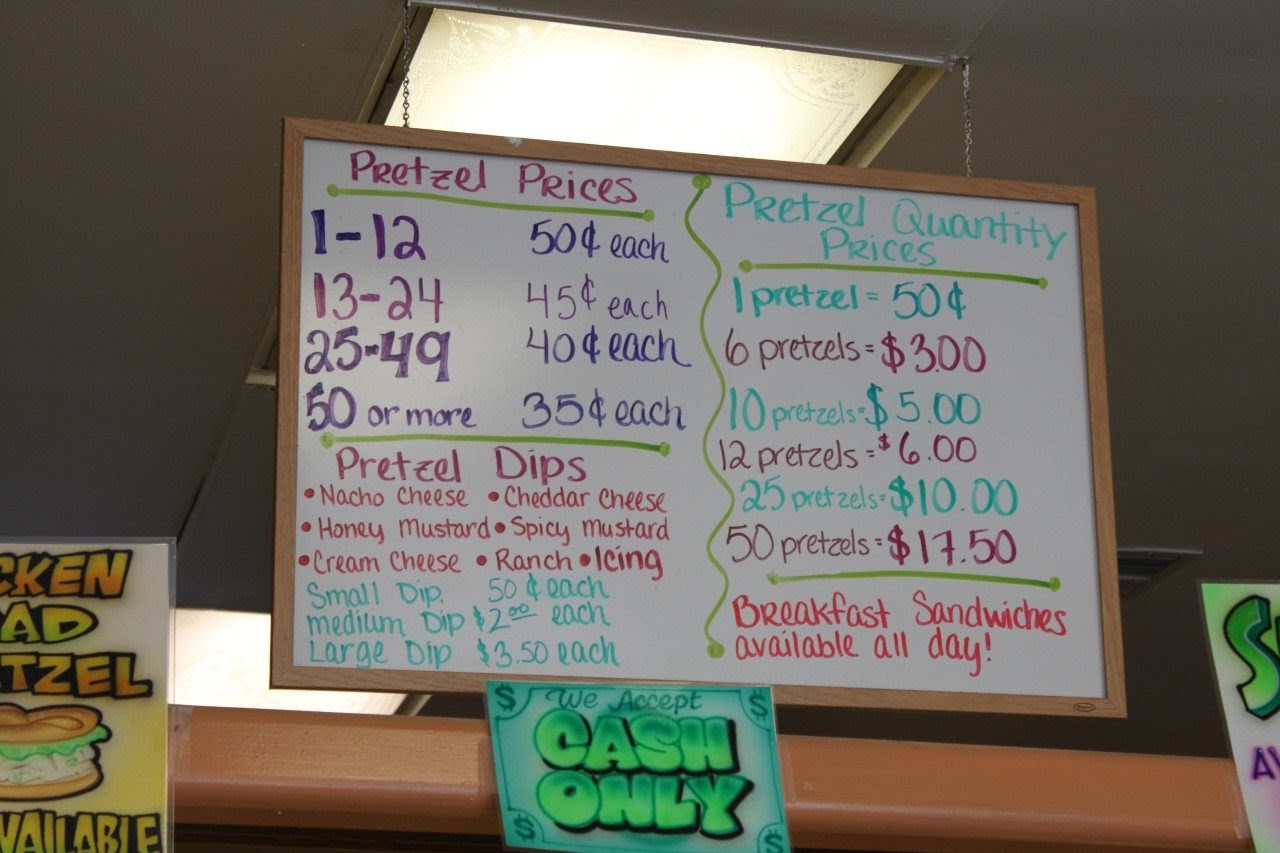 Pretzel Prices
1-12 50¢ each
13-24 45¢ each
25-49 40¢ each
50 or more 35¢ each
Pretzel Dips
• Nacho Cheese • Cheddar Cheese
• Honey Mustard • Spicy Mustard
• Cream Cheese • Ranch • Icing
Small Dip. 50¢ each
medium Dip $2.00 each
Large Dip $3.50 each
Pretzel Quantity
Prices
1 pretzel = 50¢
6 pretzels = $3.00
10 pretzels = $5.00
12 pretzels = $6.00
25 pretzels = $10.00
50 pretzels = $17.50
Breakfast Sandwiches
available all day!
$ We Accept $
CASH
ONLY
$ $